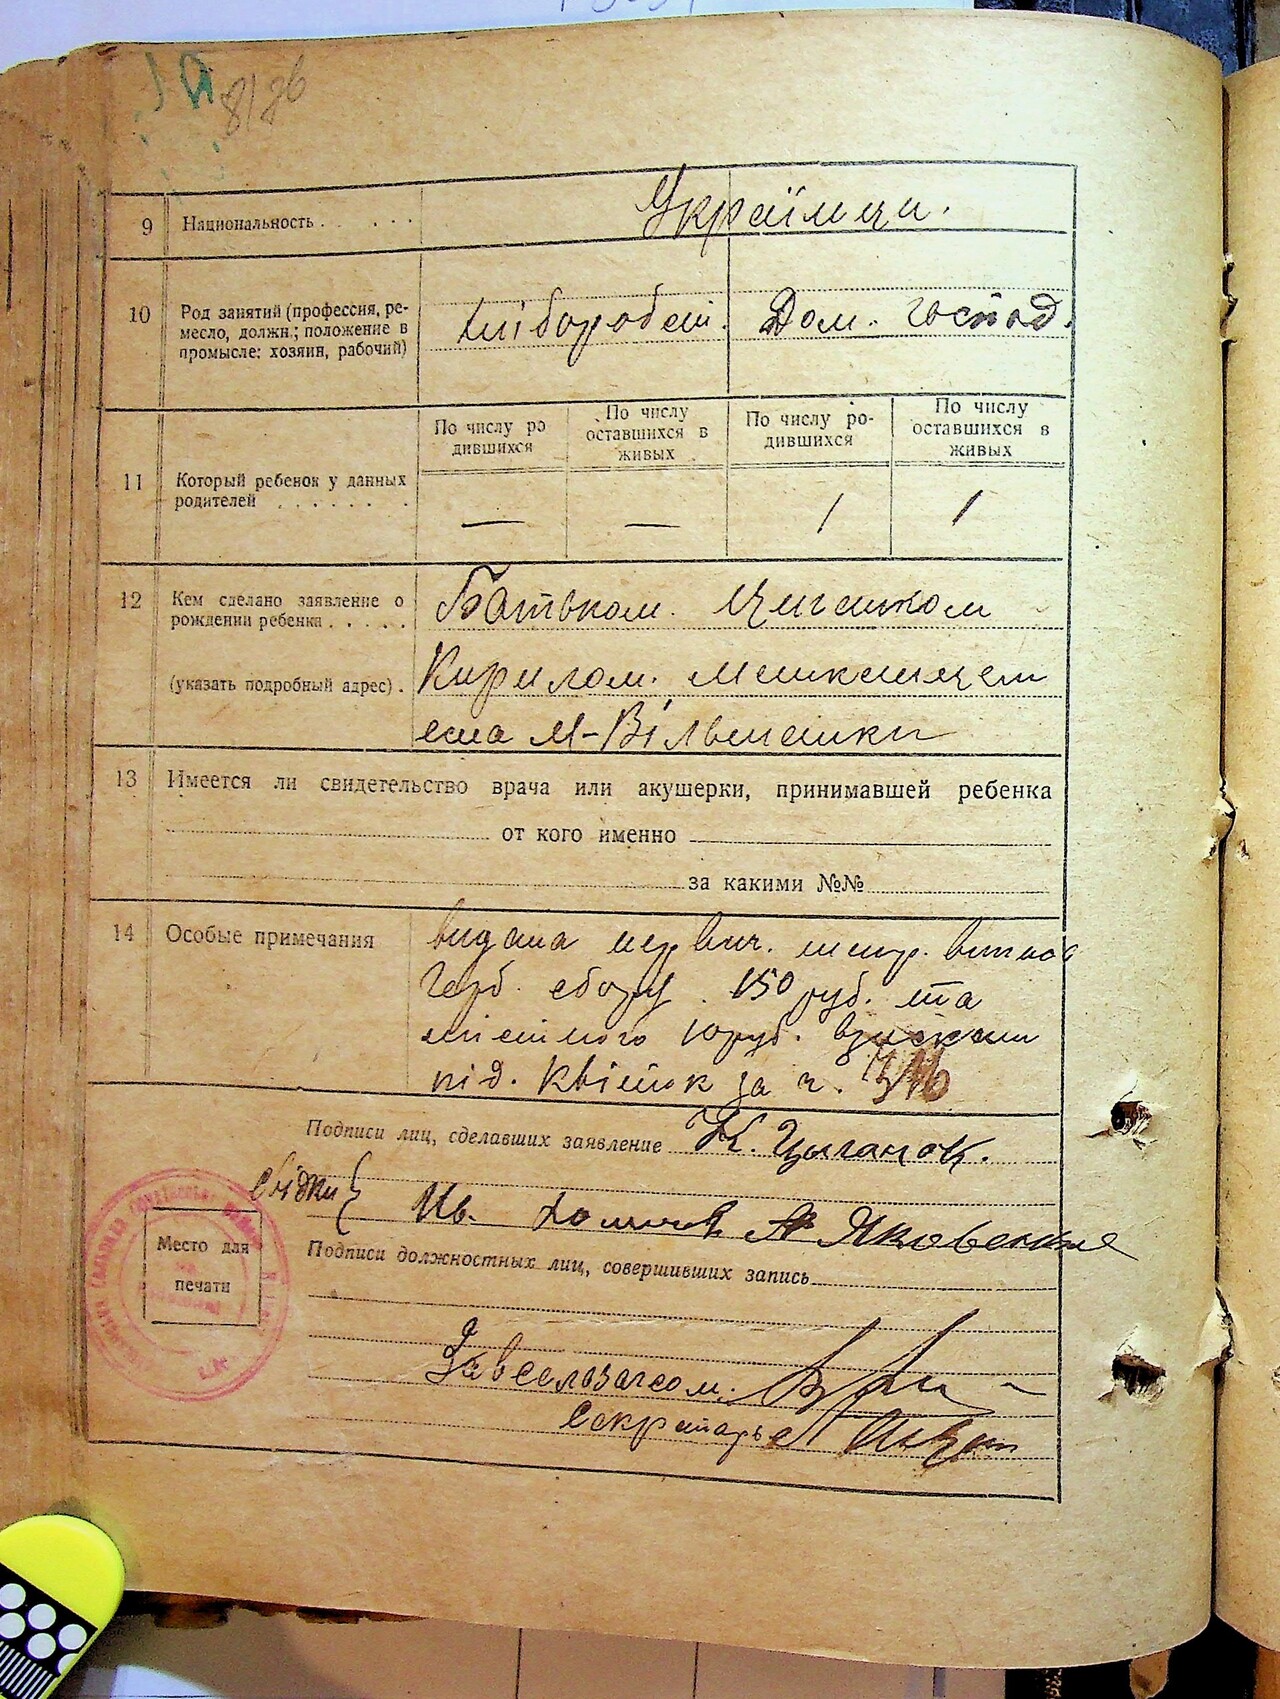 9 Национальность . . . . Українци.
10 Род занятий (профессия, ре-
месло, должн.; положение в
промысле: хозяин, рабочий)
хлібороб Дом. господ.
По числу ро
дившихся
По числу
оставшихся в
живых
По числу ро-
дившихся
По числу
оставшихся в
живых
11 Который ребенок у данных
родителей . . . . . . .
— — 1 1
12 Кем сделано заявление о
рождении ребенка . . . . .
(указать подробный адрес) .
Батьком. Циганком
Кирилом. мешканцем
м-Вільшанки
13 Имеется ли свидетельство врача или акушерки, принимавшей ребенка
от кого именно
за какими №№
14 Особые примечания
видана
герб. сбору 150 руб. та
містного 10 руб. взискани
під. квіток за ч.
Подписи лиц, сделавших заявление К. Цыганок.
Свідки { Ив. А Яковенко
Место для
печати
Подписи должностных лиц, совершивших запись
Завселозагсом.
Секретарь